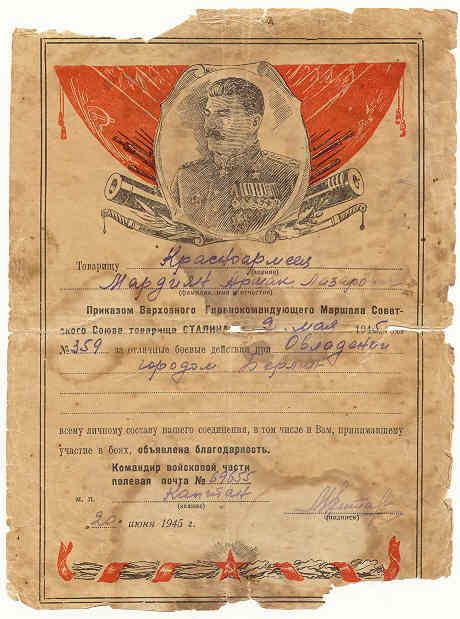 Товарищу Красноармеец
(звание)
Мардиян Аршак Лазаро
(фамилия, имя и отчество)
Приказом Верховного Главнокомандующего Маршала Совет-
ского Союза товарища СТАЛИНА 2 мая 1945 года
№ 359 за отличные боевые действия при Овладении
городом Берлин
всему личному составу нашего соединения, в том числе и Вам, принимавшему
участие в боях, объявлена благодарность.
Командир войсковой части
полевая почта № 69655
м. п. Капитан
(звание) (подпись)
„20“ июня 1945 г.